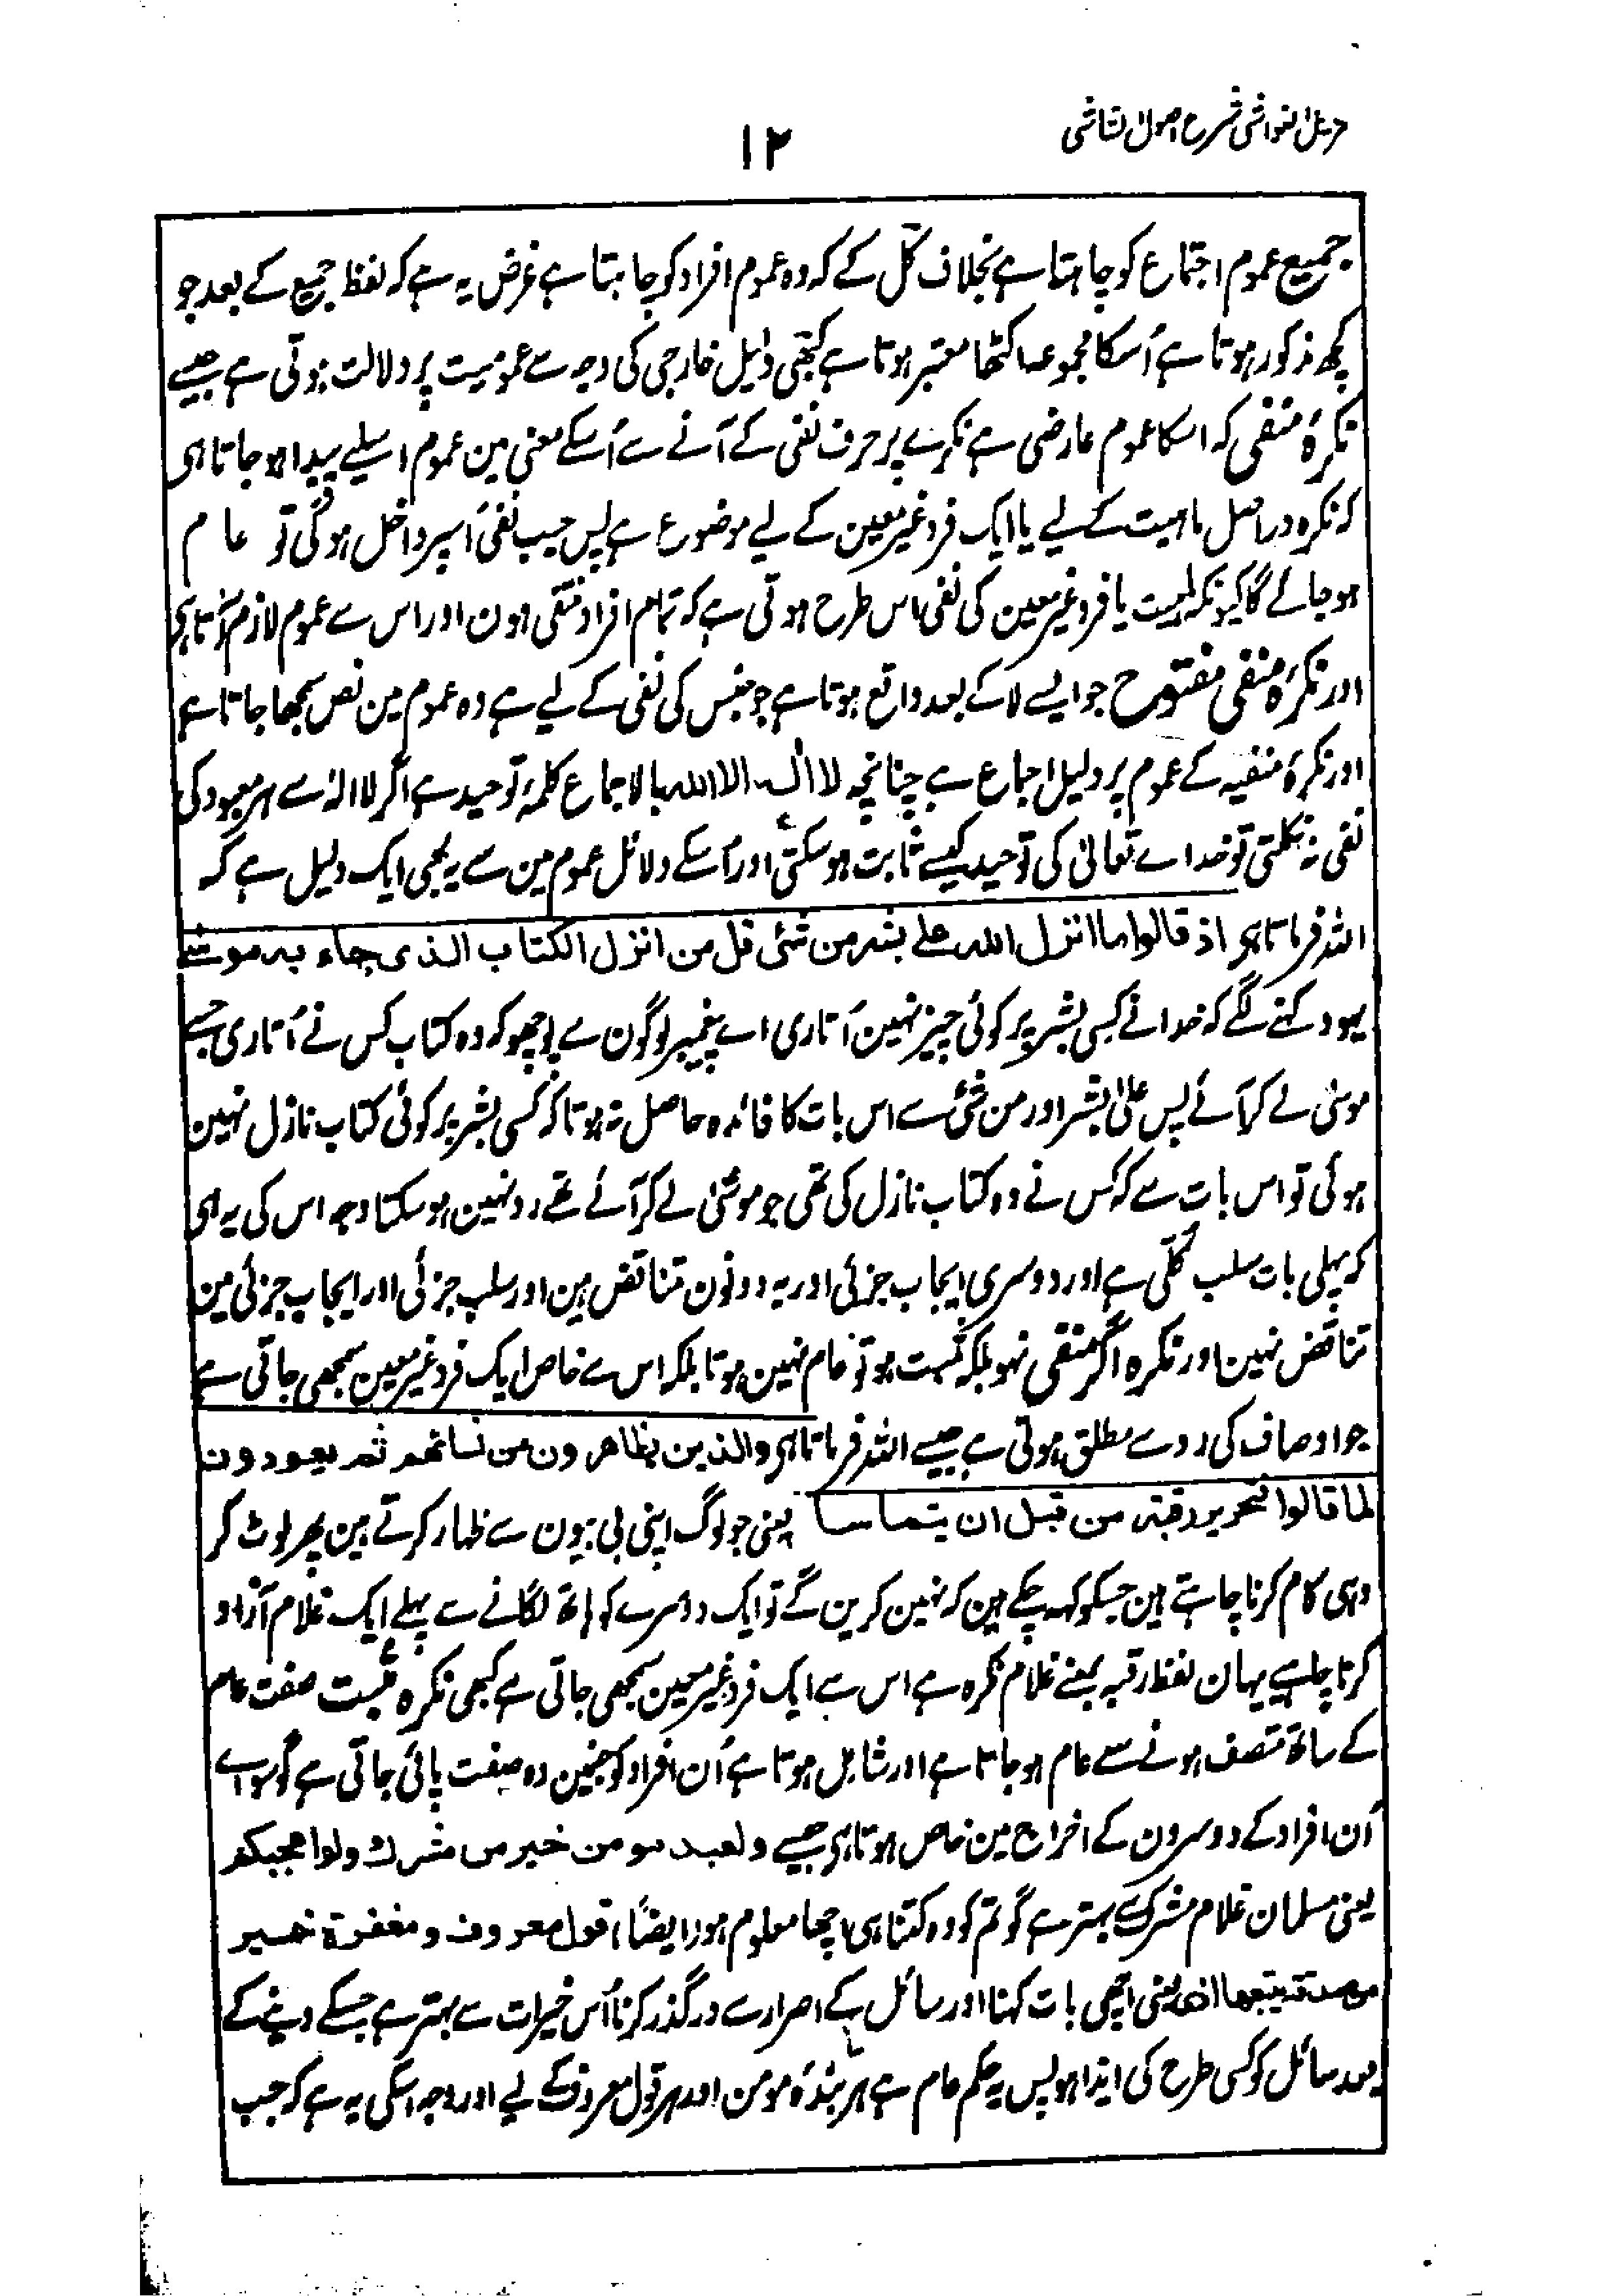 مزیل الغواشی شرح اصول الشاشی
۱۲
جمیع عموم اجتماع کو چاہتا ہے بخلاف کُل کے کہ وہ عموم افراد کو چاہتا ہے غرض یہ ہے کہ لفظ جمیع کے بعد جو
کچھ مذکور ہوتا ہے اُسکا مجموعہ اکٹھا معتبر ہوتا ہے کبھی دلیل خارجی کی وجہ سے عمومیت پر دلالت ہوتی ہے جیسے
نکرۂ منفی کہ اسکا عموم عارضی ہے نکرے پر حرف نفی کے آنے سے اُسکے معنی مین عموم اسلیے پیدا ہو جاتا ہی
کہ نکرہ دراصل ماہیت کے لیے یا ایک فرد غیر معین کے لیے موضوع ہے پس جب نفی اُسپر داخل ہوگی تو عام
ہو جائے گا کیونکہ ماہیت یا فرد غیر معین کی نفی اس طرح ہوتی ہے کہ تمام افراد منتفی ہون اور اس سے عموم لازم آتا ہی
اور نکرۂ منفی مفتوح جو ایسے لا کے بعد واقع ہوتا ہے جو جنس کی نفی کے لیے ہے وہ عموم مین نص سمجھا جاتا ہے
اور نکرۂ منفیہ کے عموم پر دلیل اجماع ہے چنانچہ لا الہ الا اللہ بالاجماع کلمۂ توحید ہے اگر لا الہ سے ہر معبود کی
نفی نہ نکلتی تو خداے تعالیٰ کی توحید کیسے ثابت ہو سکتی اور اُسکے دلائل عموم مین سے یہ بھی ایک دلیل ہے کہ
اللہ فرماتا ہی اذ قالوا ما انزل اللہ علے بشر من شئ قل من انزل الکتاب الذی جاء بہ موسٰے
یہود کہنے لگے کہ خدا نے کسی بشر پر کوئی چیز نہین اُتاری اے پیغمبر لوگون سے پوچھو کہ وہ کتاب کس نے اُتاری جسے
موسیٰ لے کر آئے پس علیٰ بشر اور من شئ سے اس بات کا فائدہ حاصل نہ ہوتا کہ کسی بشر پر کوئی کتاب نازل نہین
ہوئی تو اس بات سے کہ کس نے وہ کتاب نازل کی تھی جو موسیٰ لے کر آئے تھے رد نہین ہو سکتا وجہ اس کی یہ ہی
کہ پہلی بات سلب کُلی ہے اور دوسری ایجاب جزئی اور یہ دونون تناقض ہین اور سلب جزئی اور ایجاب جزئی مین
تناقض نہین اور نکرہ اگر منفی نہو بلکہ مثبت ہو تو عام نہین ہوتا بلکہ اس سے خاص ایک فرد غیر معین سمجھی جاتی ہے
جو اوصاف کی رو سے مطلق ہوتی ہے جیسے اللہ فرماتا ہی والذین یظاہرون من نسائھم ثم یعودون
لما قالوا فتحریر رقبۃ من قبل ان یتماسا یعنی جو لوگ اپنی بی بیون سے ظہار کرتے ہین پھر لوٹ کر
وہی کام کرنا چاہتے ہین جسکو کہہ چکے ہین کہ نہین کرین گے تو ایک دوسرے کو ہاتھ لگانے سے پہلے ایک غلام آزاد
کرنا چاہیے یہان لفظ رقبہ بمعنے غلام نکرہ ہے اس سے ایک فرد غیر معین سمجھی جاتی ہے کبھی نکرہ مثبت صفت عام
کے ساتھ متصف ہونے سے عام ہو جاتا ہے اور شامل ہوتا ہے اُن افراد کو جنمین وہ صفت پائی جاتی ہے گو سواے
اُن افراد کے دوسرون کے اخراج مین خاص ہوتا ہی جیسے ولعبد مومن خیر من مشرک ولو اعجبکم
یعنی مسلمان غلام مشرک سے بہتر ہے گو تم کو وہ کتنا ہی اچھا معلوم ہو ایضاً قول معروف و مغفرۃ خیر
من صدقۃ یتبعھا اذی یعنی اچھی بات کہنا اور سائل کے اصرار سے درگذر کرنا اُس خیرات سے بہتر ہے جسکے دینے کے
بعد سائل کو کسی طرح کی ایذا ہو پس یہ حکم عام ہے ہر بندۂ مومن اور ہر قول معروف کے لیے اور وجہ اسکی یہ ہے کہ جب